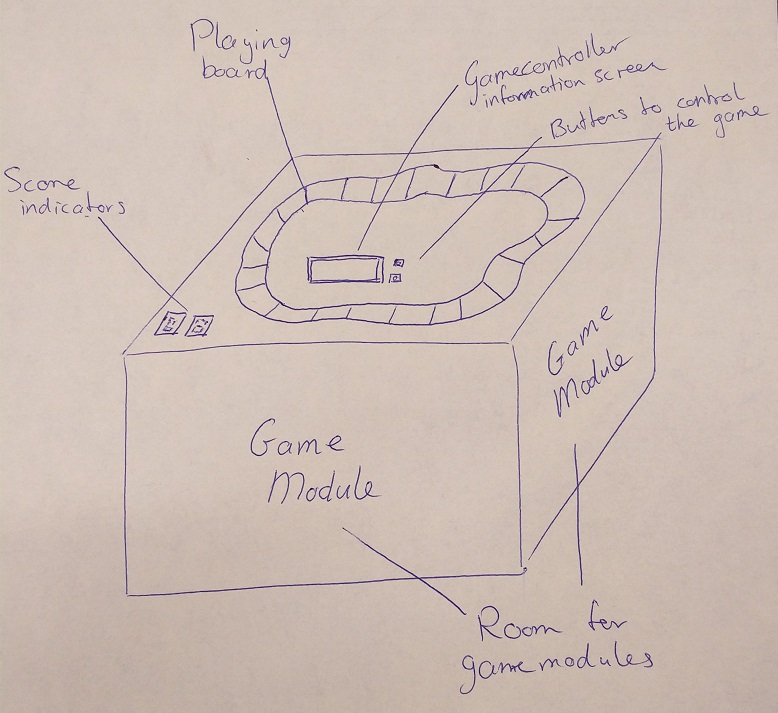 Playing
board
Gamecontroller
information screen
Buttons to control
the game
Score
indicators
Game
Module
Game
Module
Room for
gamemodules